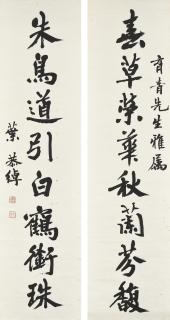 育青先生雅属
春草荣華秋蘭芬馥
朱鳥道引白鶴銜珠
葉恭綽